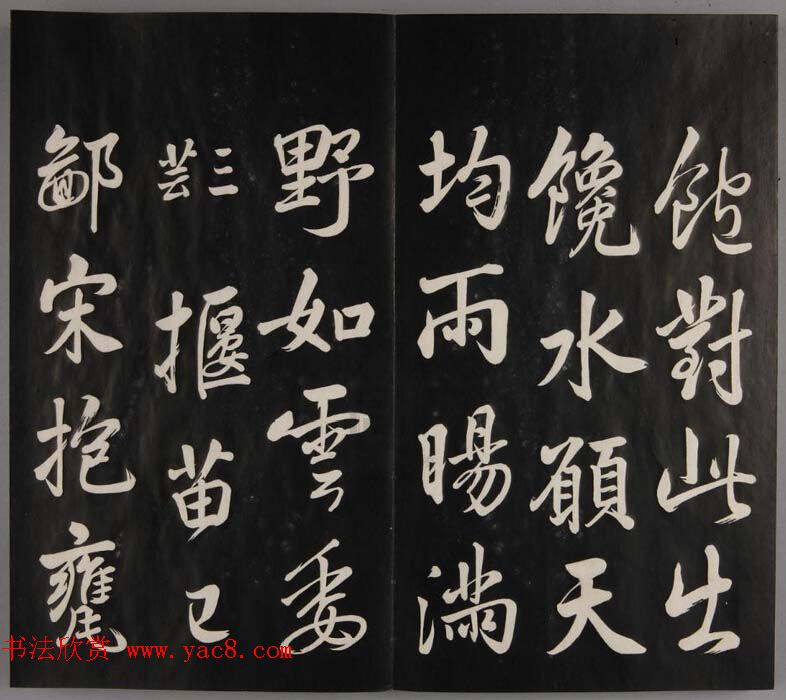 飽對此出
饞水願天
均雨暘滿
野如雲委
三芸
揠苗已
鄙宋抱甕
书法欣赏 www.yac8.com